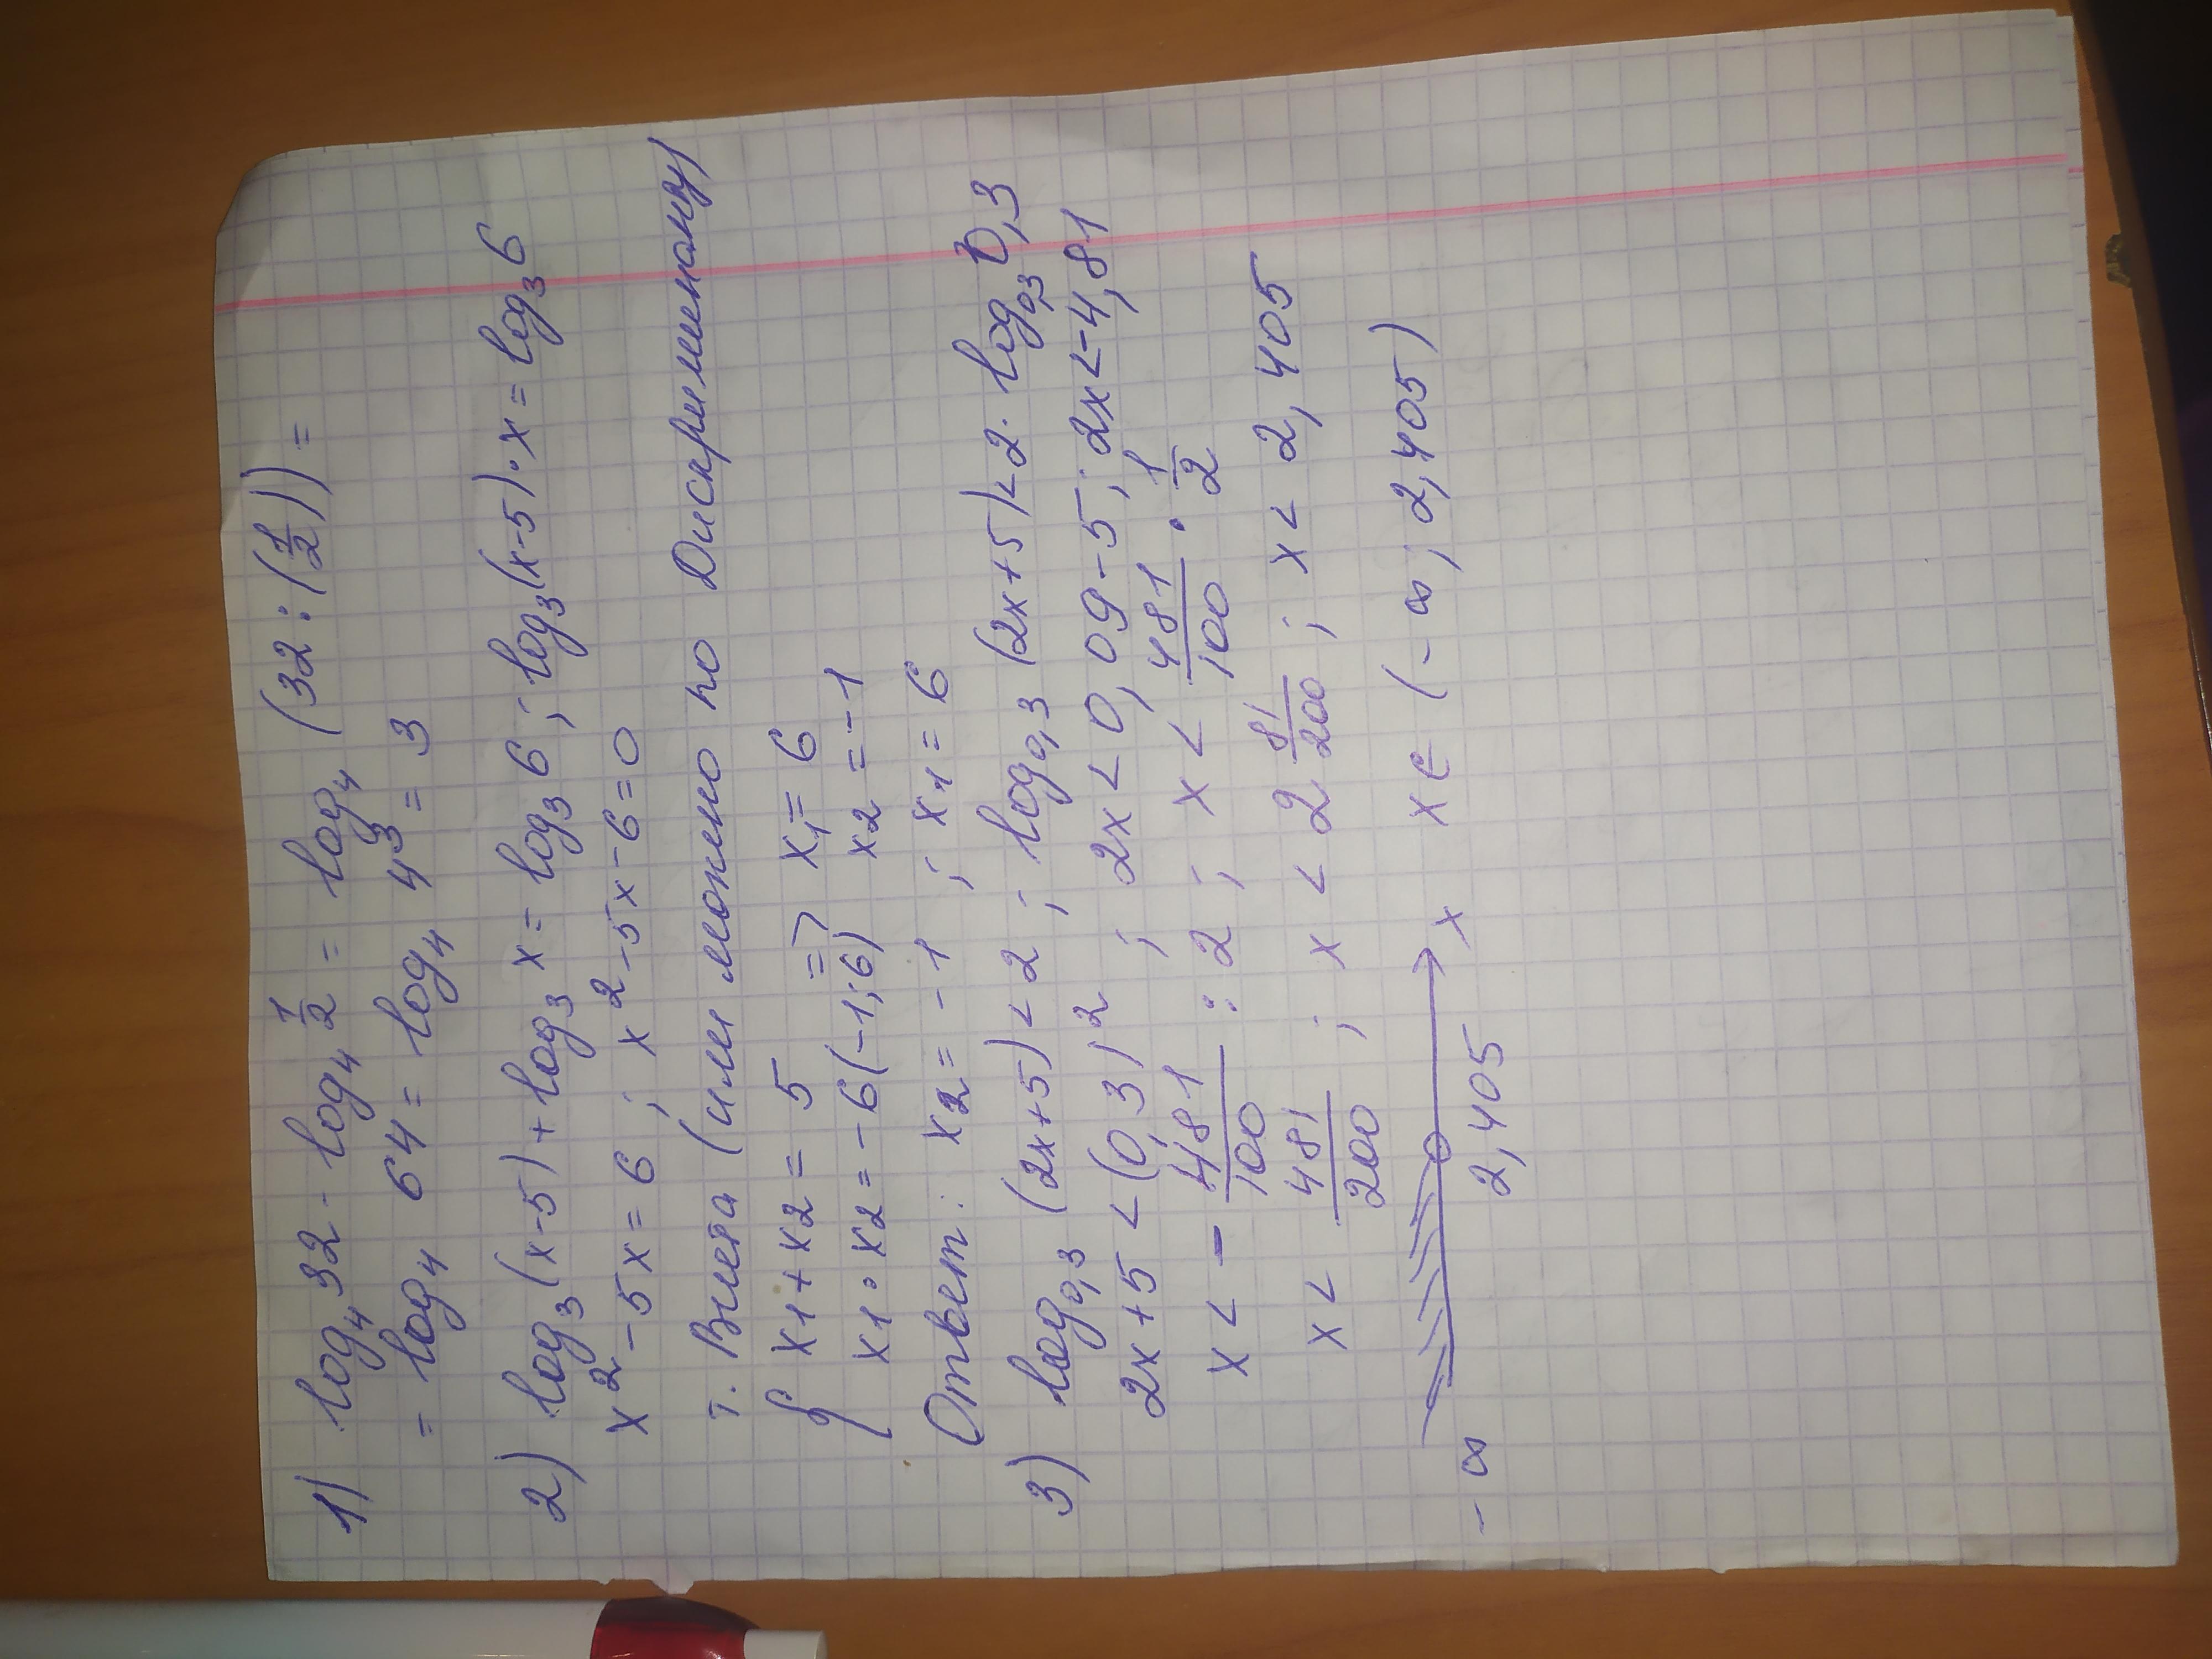 1) log₄ 32 - log₄ 1/2 = log₄ (32 : (1/2)) =
= log₄ 64 = log₄ 4³ = 3
2) log₃ (x-5) + log₃ x = log₃ 6 ; log₃ (x-5)·x = log₃ 6
x² - 5x = 6 ; x² - 5x - 6 = 0
т. Виета (или можно по Дискриминанту)
{ x₁ + x₂ = 5 => x₁ = 6
x₁ · x₂ = -6 (-1; 6) x₂ = -1
Ответ: x₂ = -1 ; x₁ = 6
3) log₀,₃ (2x+5) < 2 ; log₀,₃ (2x+5) < 2 · log₀,₃ 0,3
2x+5 < (0,3)² ; 2x < 0,09-5 ; 2x < -4,81
x < - 481/100 : 2 ; x < 481/100 · 1/2
x < 481/200 ; x < 2 81/200 ; x < 2,405
x x ∈ (-∞; 2,405)
-∞ 2,405